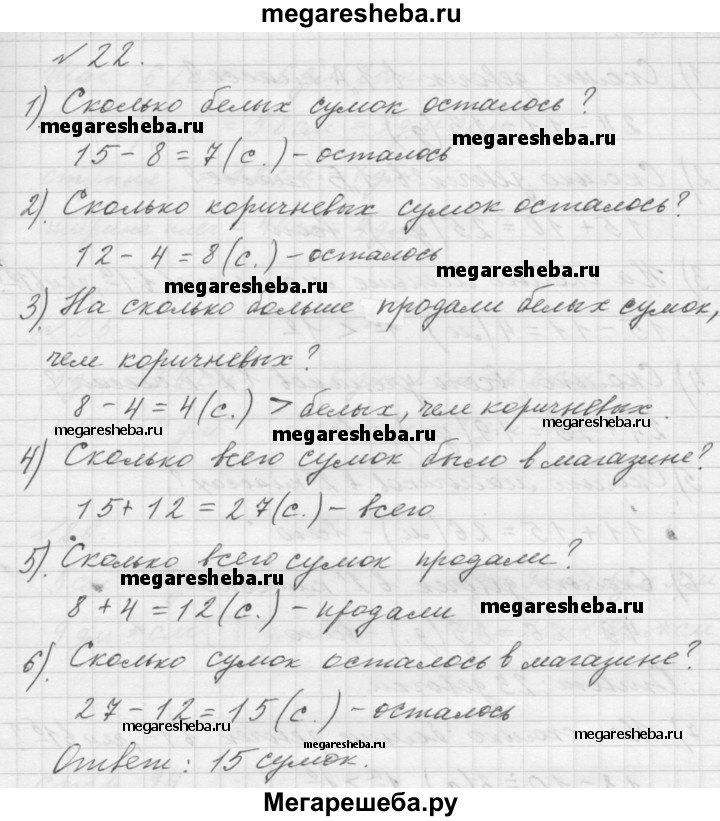 megaresheba.ru
№ 22.
1) Сколько белых сумок осталось?
megaresheba.ru
megaresheba.ru
15 - 8 = 7 (с.) - осталось
2) Сколько коричневых сумок осталось?
12 - 4 = 8 (с.) - осталось
megaresheba.ru
megaresheba.ru
3) На сколько больше продали белых сумок,
чем коричневых?
8 - 4 = 4 (с.) > белых, чем коричневых.
megaresheba.ru
megaresheba.ru
megaresheba.ru
4) Сколько всего сумок было в магазине?
15 + 12 = 27 (с.) - всего
5) Сколько всего сумок продали?
megaresheba.ru
8 + 4 = 12 (с.) - продали
megaresheba.ru
6) Сколько сумок осталось в магазине?
27 - 12 = 15 (с.) - осталось
megaresheba.ru
megaresheba.ru
megaresheba.ru
Ответ: 15 сумок.
Мегарешеба.ру